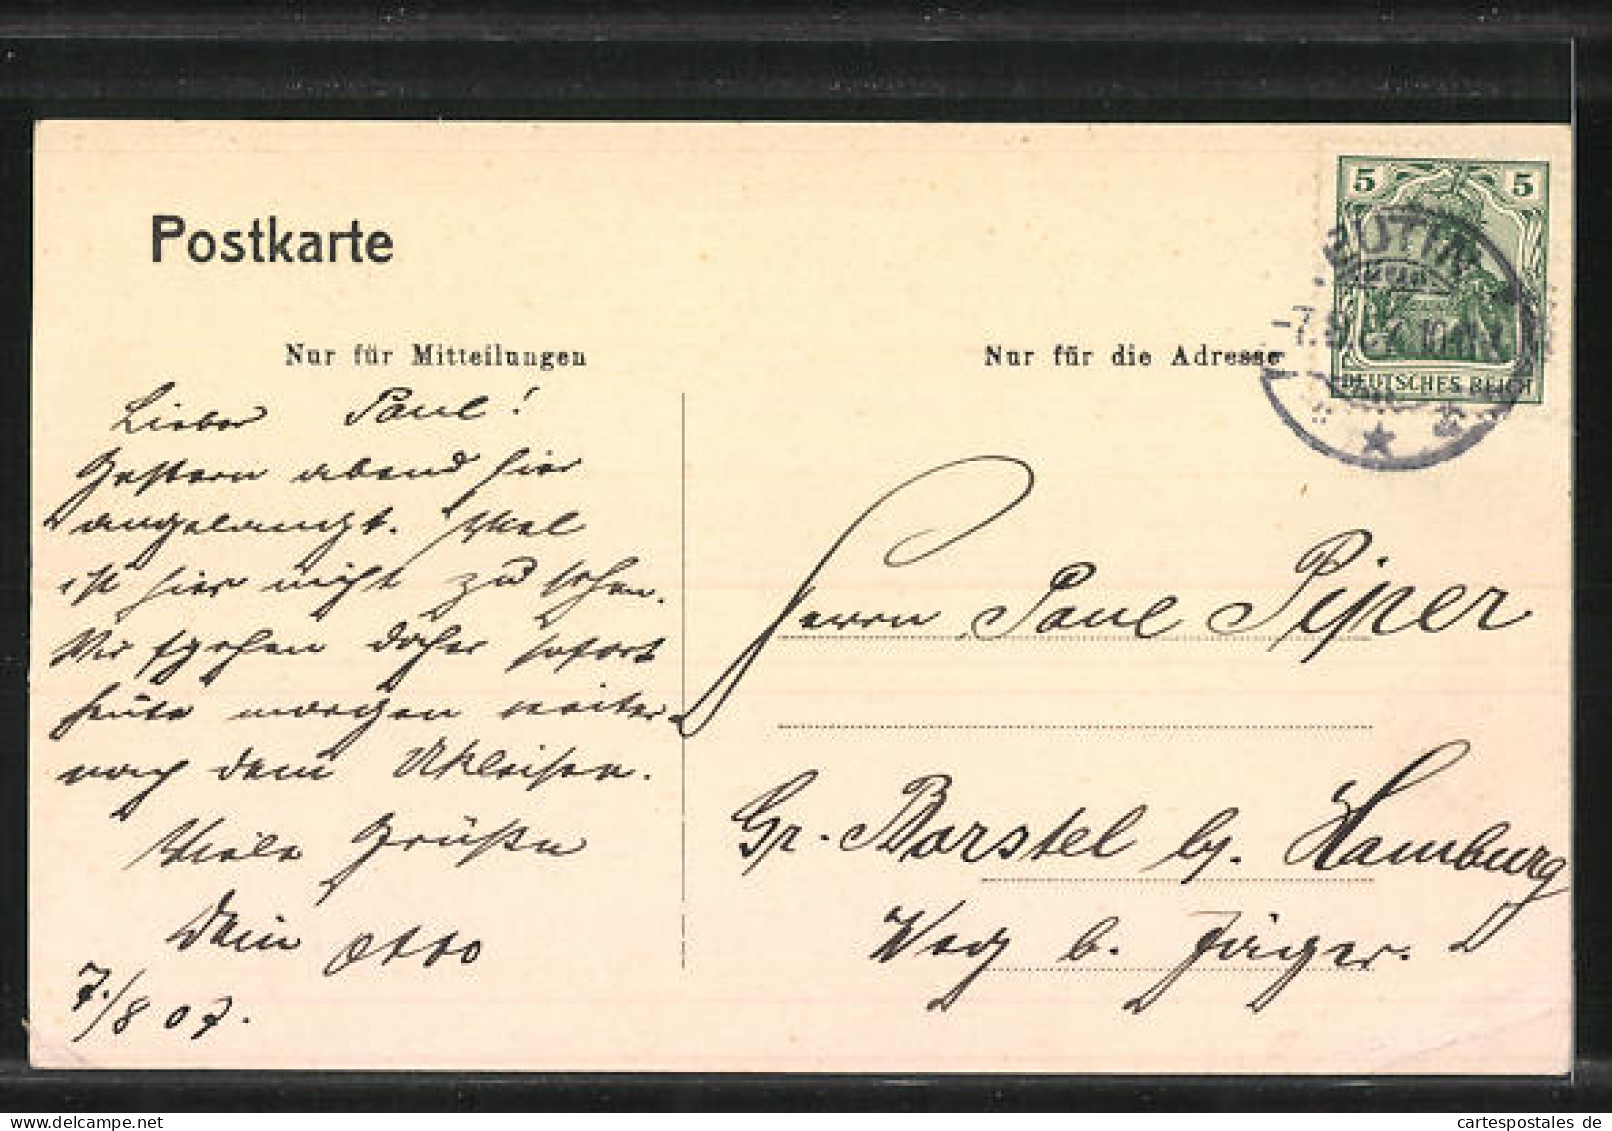 Postkarte
Nur für Mitteilungen
Nur für die Adresse
5 5
DEUTSCHES REICH
EUTIN
-7.8.07. 10-11V.
Lieber Paul!
Gestern abend hier
angelangt. Viel
ist hier nicht zu sehen.
Wir gehen daher sofort
heute morgen weiter
nach dem Ukleisee.
Viele Grüße
Dein Otto
7./8 07.
Herrn Paul Piper
Gr.-Borstel b. Hamburg
Weg b. Jäger.
cartespostales de